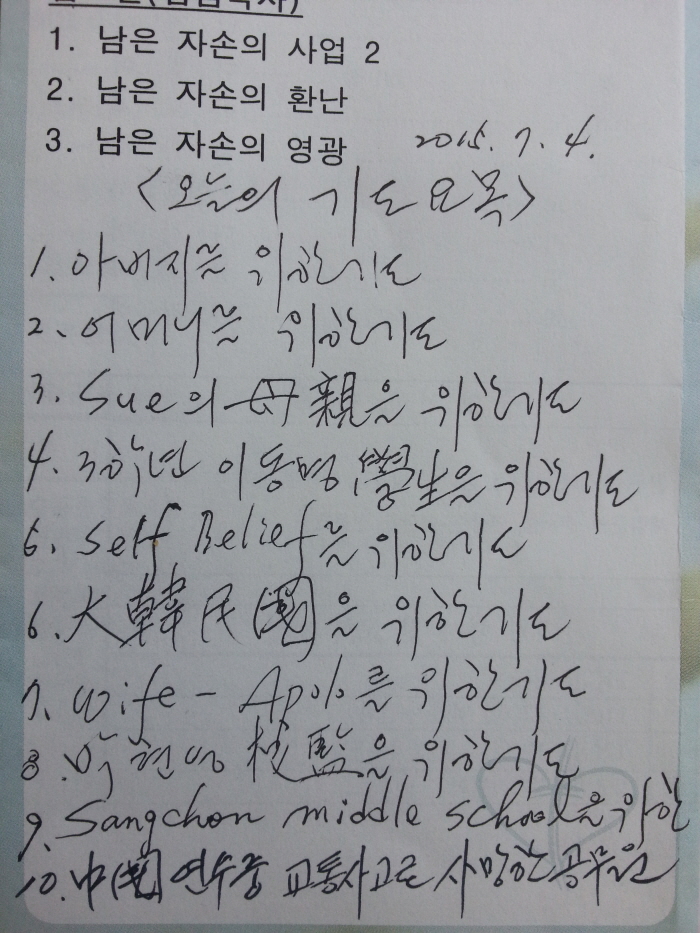 1. 남은 자손의 사업 2
2. 남은 자손의 환난
3. 남은 자손의 영광 2015. 7. 4.
<오늘의 기도요목>
1. 아버지를 위한기도
2. 어머니를 위한기도
3. Sue의 母親을 위한기도
4. 3학년 이동명 學生을 위한기도
5. Self Belief를 위한기도
6. 大韓民國을 위한기도
7. wife - Apolo를 위한기도
8. 박현영 校監을 위한기도
9. Sangchon middle school을 위한
10. 中國 연수중 교통사고로 사망한 공무원